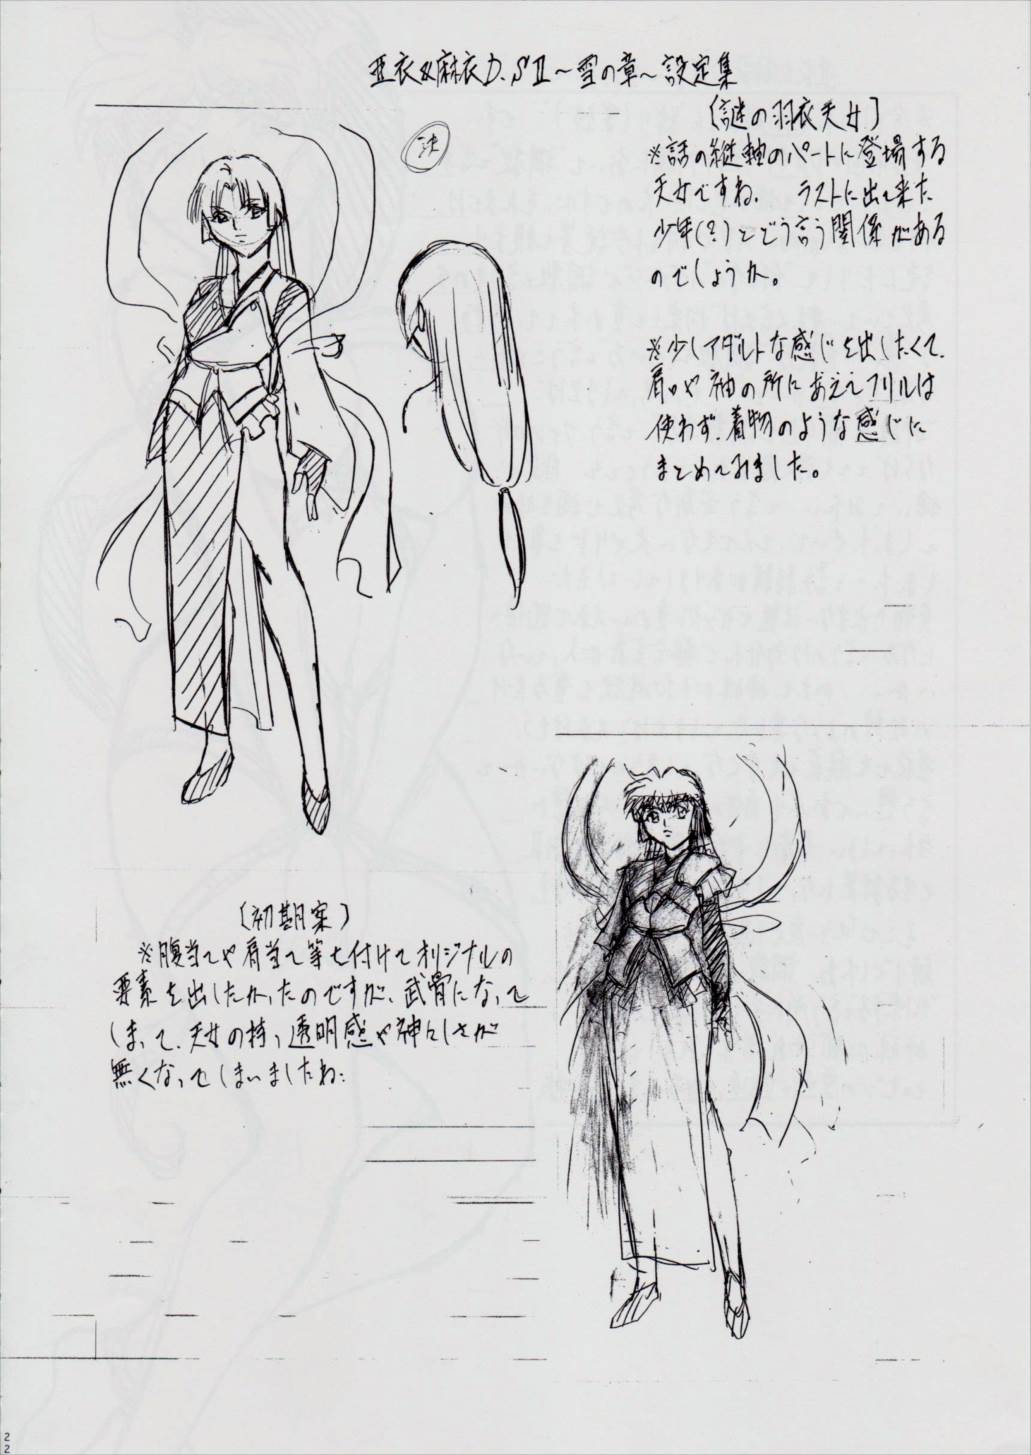 亜衣&麻衣D.SⅡ～雪の章～設定集
〔謎の羽衣天女〕
決
※話の縦軸のパートに登場する
天女ですね。 ラストに出て来た
少年(?)とどう言う関係がある
のでしょうか。
※少しアダルトな感じを出したくて、
肩や袖の所にあえてフリルは
使わず、着物のような感じに
まとめてみました。
〔初期案〕
※腹当てや肩当て等も付けてオリジナルの
要素を出したかったのですが、武骨になって
しまって、天女の持つ透明感や神々しさが
無くなってしまいましたね:
22